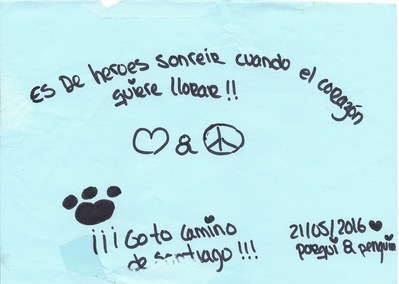 ES DE heroes sonreir cuando el corazón
quiere llorar!!
&
¡¡¡Go to camino
de Santiago!!!
21/05/2016
porqui & penguin